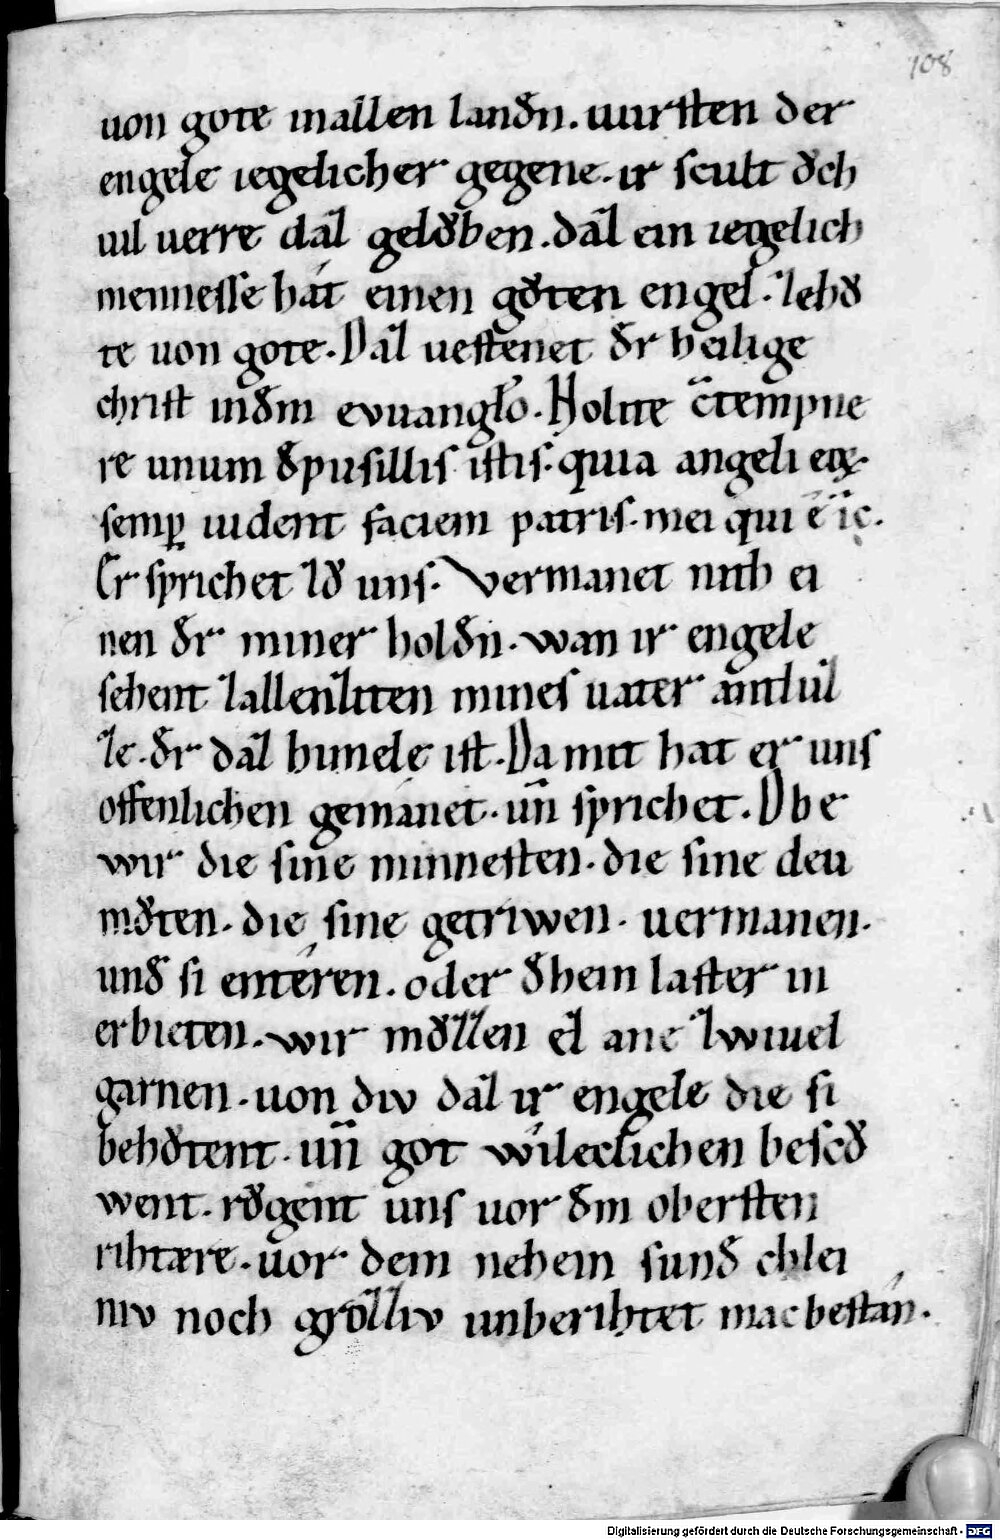 108
uon gote inallen landn. uursten der
engele iegelicher gegene. ir scult ǒch
uil uerre daz gelǒben. daz ein iegelich
mennesse hát einen gǒten engel. zehǒ
te uon gote. Daz uestenet dr heilige
christ indm evuanglo. Nolite ctempne
re unum dpusillis istis. quia angeli eoꝝ
semꝑ uident faciem patris. mei qui e ic.
Er sprichet zǒ uns. Vermanet nith ei
nen dr miner holdn. wan ir engele
sehent zallenziten mines uater antluz
ze. dr daz himele ist. Da mit hat er uns
offenlichen gemanet. un sprichet. Obe
wir die sine minnesten. die sine deu
mǒten. die sine getriwen. uermanen.
und si entéren. oder dhein laster in
erbieten. wir mǒzzen ez ane zwiuel
garnen. uon div daz ir engele die si
behǒtent. un got wizleclichen bescǒ
went. rǒgent uns vor dm obersten
rihtære. uor dem nehein sund chlei
niv noch grozziv unberihtet mac bestán.
Digitalisierung gefördert durch die Deutsche Forschungsgemeinschaft - DFG